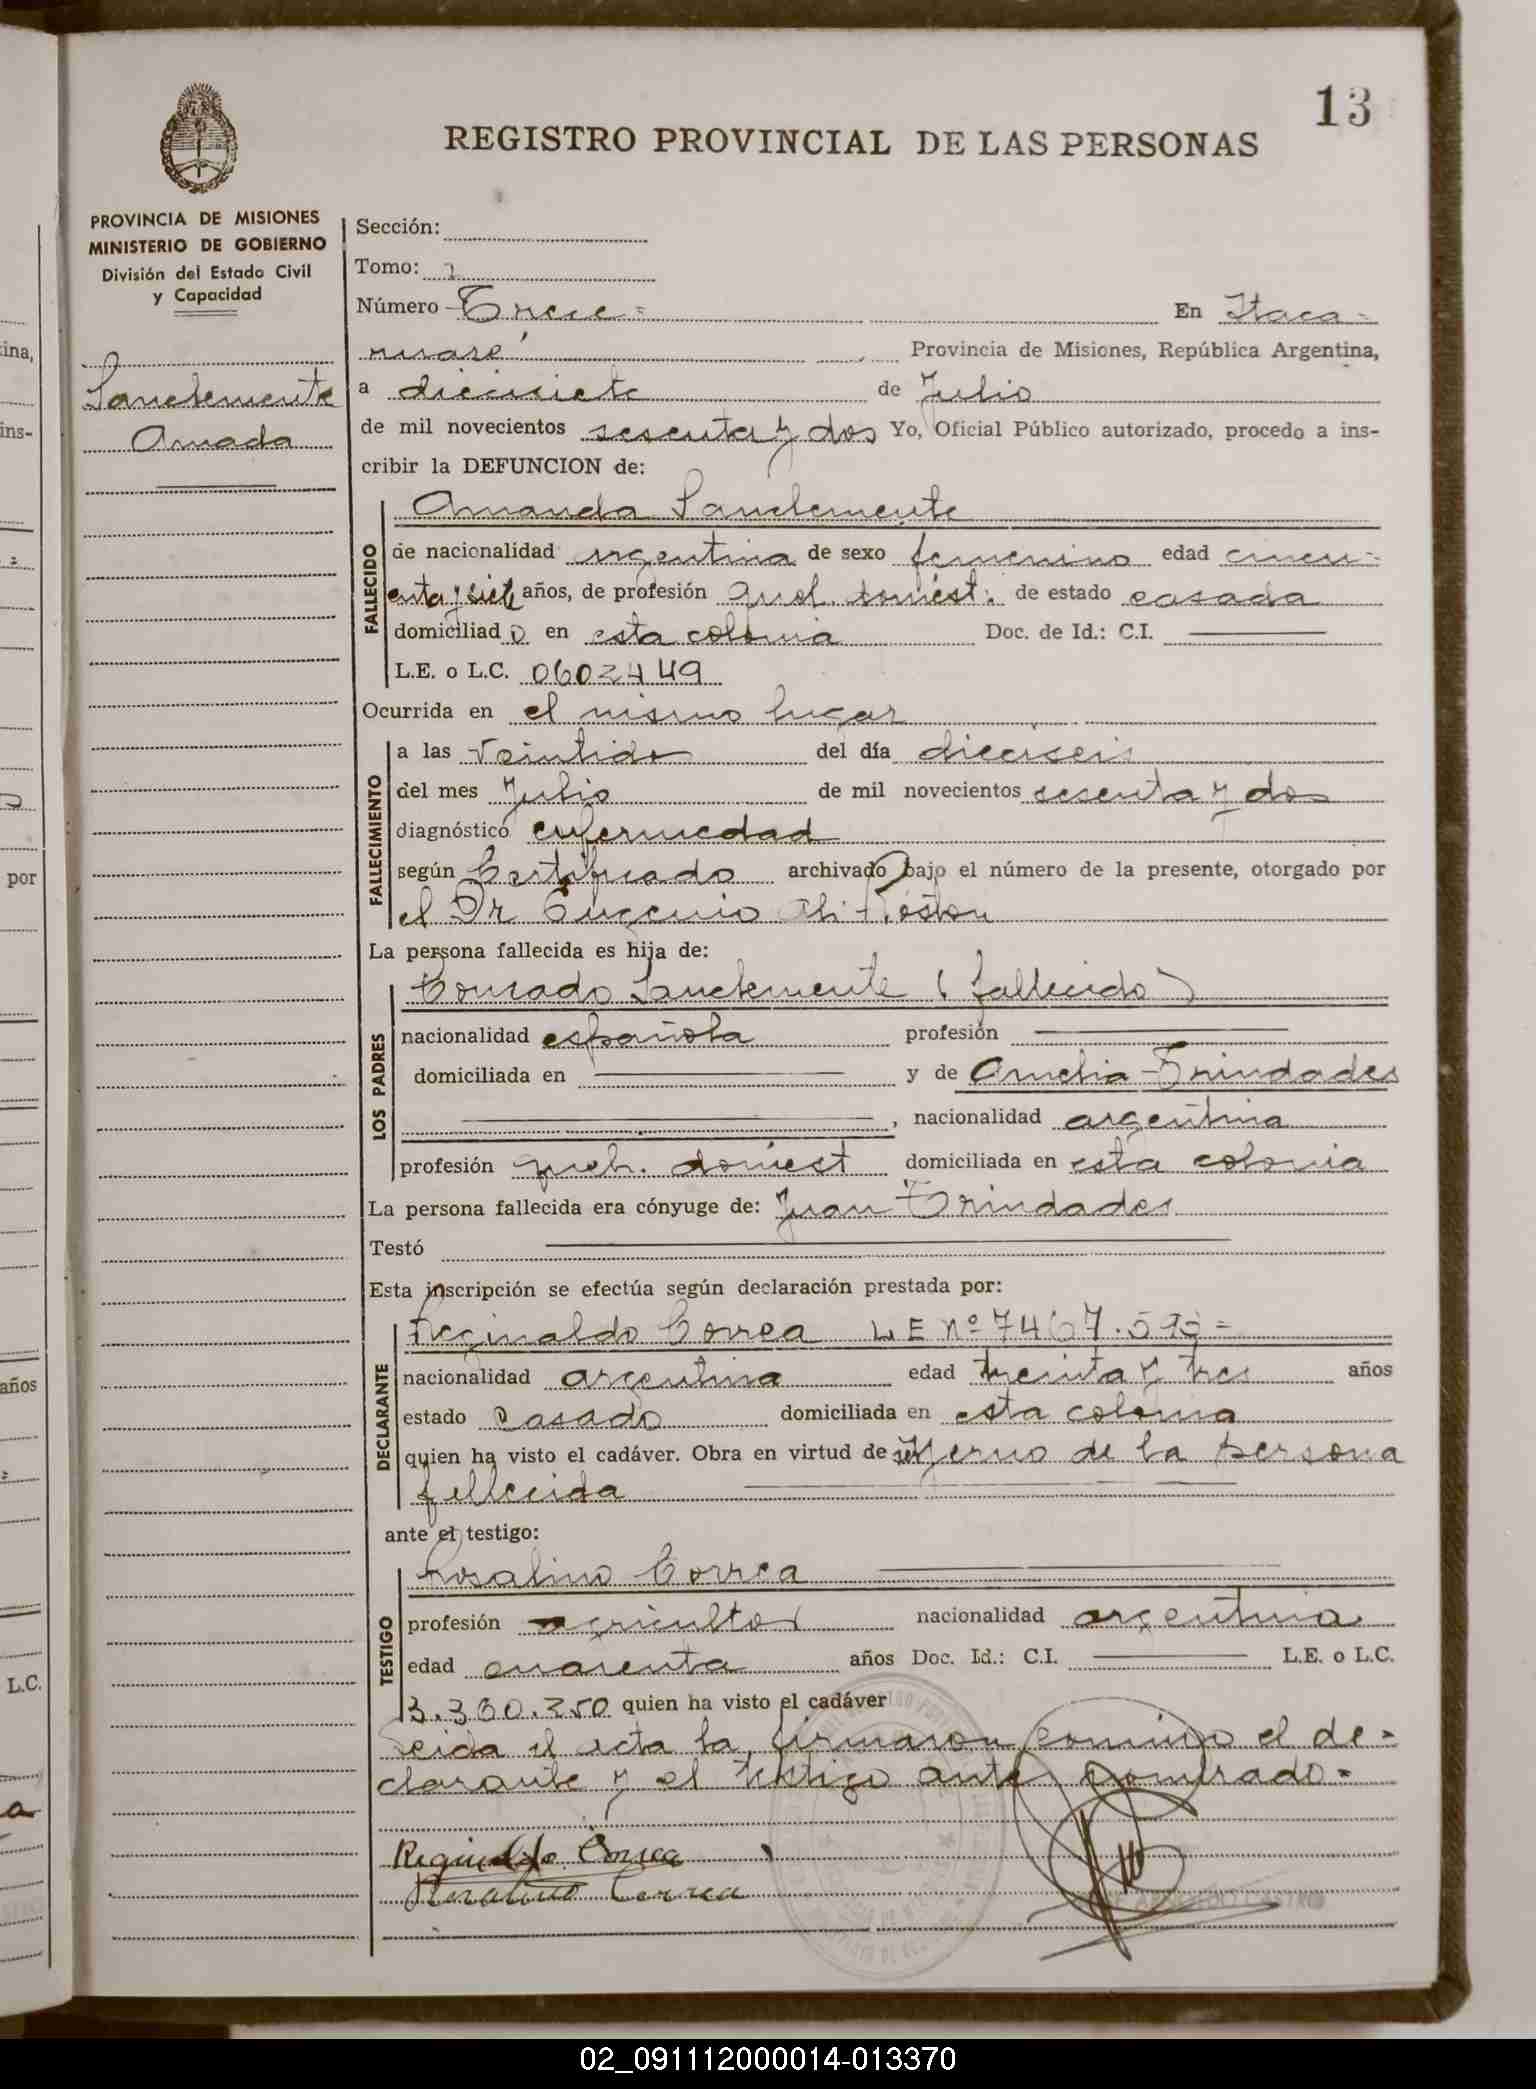 13
REGISTRO PROVINCIAL DE LAS PERSONAS
PROVINCIA DE MISIONES
MINISTERIO DE GOBIERNO
División del Estado Civil
y Capacidad
Sanclemente
Amada
Sección:
Tomo: 2
Número Trece = En Itaca-
ruaré Provincia de Misiones, República Argentina,
a diecisiete de Julio
de mil novecientos sesenta y dos Yo, Oficial Público autorizado, procedo a ins-
cribir la DEFUNCION de:
FALLECIDO
Amanda Sanclemente
de nacionalidad argentina de sexo femenino edad cincu-
enta y siete años, de profesión domést. de estado casada
domiciliad o en esta colonia Doc. de Id.: C.I.
L.E. o L.C. 0602449
Ocurrida en el mismo lugar
FALLECIMIENTO
a las veintidos del día dieciseis
del mes Julio de mil novecientos sesenta y dos
diagnóstico enfermedad
según Certificado archivado bajo el número de la presente, otorgado por
el Dr Eugenio
La persona fallecida es hija de:
LOS PADRES
Conrado Sanclemente (fallecido)
nacionalidad española profesión
domiciliada en y de Amelia Trindades
, nacionalidad argentina
profesión queh. domest domiciliada en esta colonia
La persona fallecida era cónyuge de: Juan Trindades
Testó
Esta inscripción se efectúa según declaración prestada por:
DECLARANTE
Reginaldo Correa L E Nº 7467.593 =
nacionalidad argentina edad treinta y tres años
estado casado domiciliada en esta colonia
quien ha visto el cadáver. Obra en virtud de ser yerno de la persona
fallecida
ante el testigo:
TESTIGO
Rosalino Correa
profesión agricultor nacionalidad argentina
edad cuarenta años Doc. Id.: C.I. L.E. o L.C.
3.360.250 quien ha visto el cadáver
Leida el acta la firmaron conmigo el de-
clarante y el testigo ante nombrado.-
Reginaldo Correa
Rosalino Correa
ina,
ins-
por
años
L.C.
02_091112000014-013370